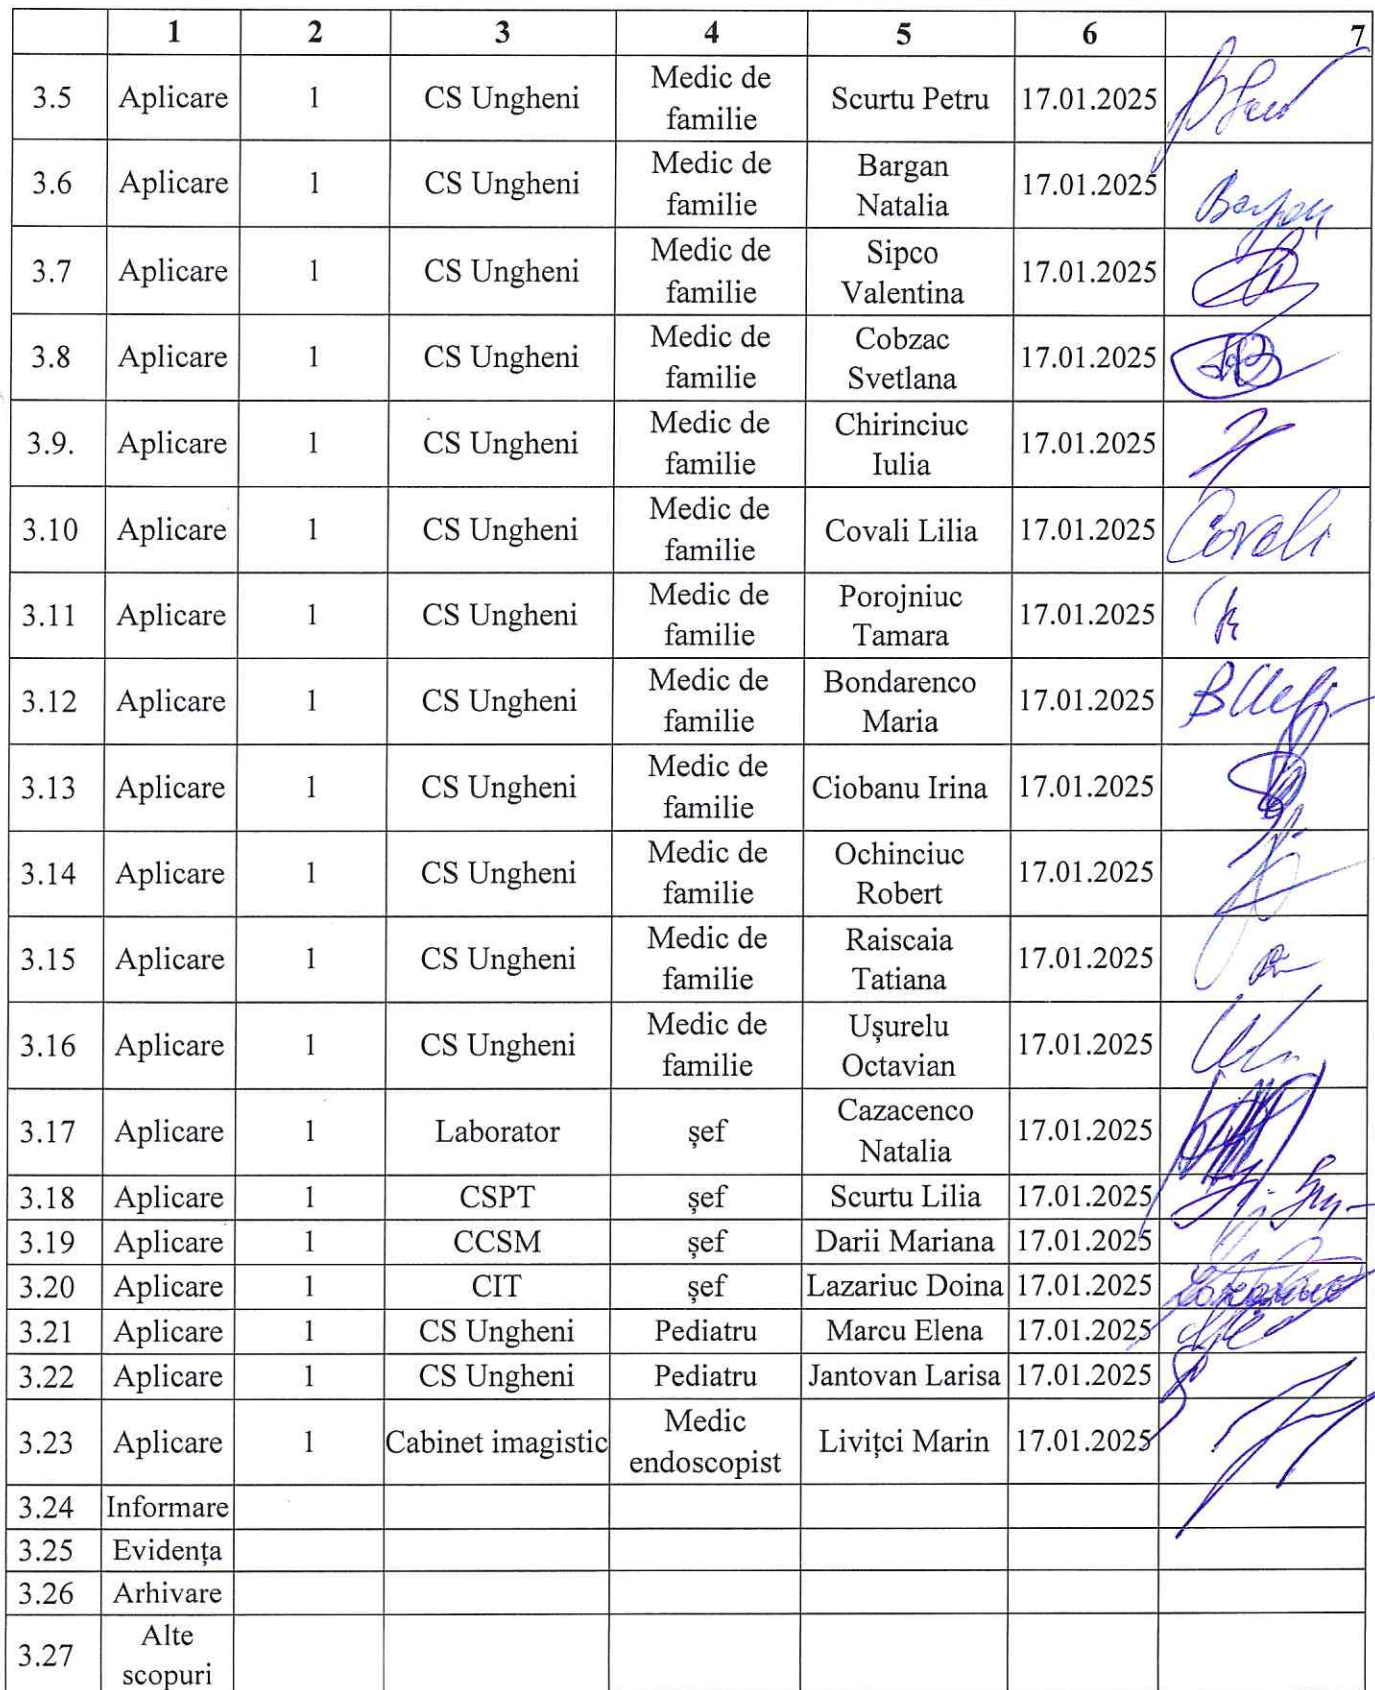 1 2 3 4 5 6 7
3.5 Aplicare 1 CS Ungheni Medic de familie Scurtu Petru 17.01.2025
3.6 Aplicare 1 CS Ungheni Medic de familie Bargan Natalia 17.01.2025
3.7 Aplicare 1 CS Ungheni Medic de familie Sipco Valentina 17.01.2025
3.8 Aplicare 1 CS Ungheni Medic de familie Cobzac Svetlana 17.01.2025
3.9. Aplicare 1 CS Ungheni Medic de familie Chirinciuc Iulia 17.01.2025
3.10 Aplicare 1 CS Ungheni Medic de familie Covali Lilia 17.01.2025 Covali
3.11 Aplicare 1 CS Ungheni Medic de familie Porojniuc Tamara 17.01.2025
3.12 Aplicare 1 CS Ungheni Medic de familie Bondarenco Maria 17.01.2025
3.13 Aplicare 1 CS Ungheni Medic de familie Ciobanu Irina 17.01.2025
3.14 Aplicare 1 CS Ungheni Medic de familie Ochinciuc Robert 17.01.2025
3.15 Aplicare 1 CS Ungheni Medic de familie Raiscaia Tatiana 17.01.2025
3.16 Aplicare 1 CS Ungheni Medic de familie Ușurelu Octavian 17.01.2025
3.17 Aplicare 1 Laborator șef Cazacenco Natalia 17.01.2025
3.18 Aplicare 1 CSPT șef Scurtu Lilia 17.01.2025
3.19 Aplicare 1 CCSM șef Darii Mariana 17.01.2025
3.20 Aplicare 1 CIT șef Lazariuc Doina 17.01.2025
3.21 Aplicare 1 CS Ungheni Pediatru Marcu Elena 17.01.2025
3.22 Aplicare 1 CS Ungheni Pediatru Jantovan Larisa 17.01.2025
3.23 Aplicare 1 Cabinet imagistic Medic endoscopist Livițci Marin 17.01.2025
3.24 Informare
3.25 Evidența
3.26 Arhivare
3.27 Alte scopuri